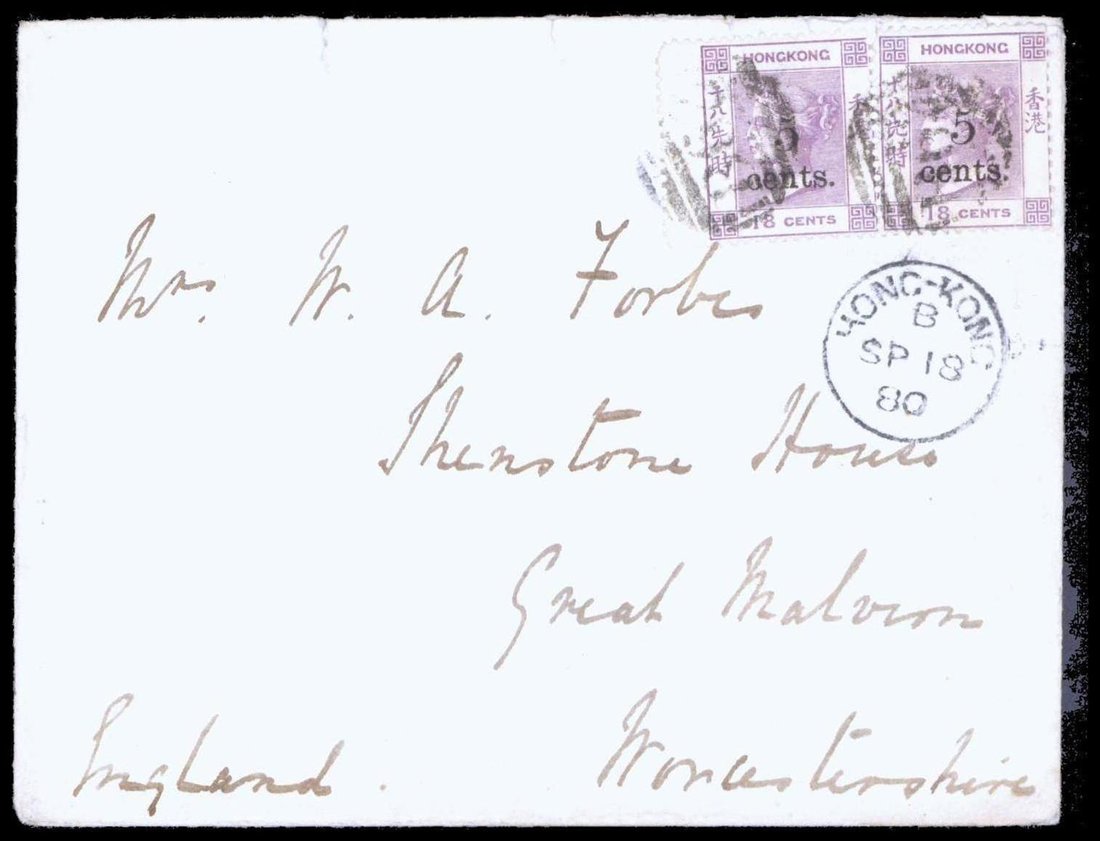 HONGKONG
十八先時
香
5
cents.
18 CENTS
HONGKONG
十八先時
香港
5
cents.
18 CENTS
HONG-KONG
B
SP 18
80
Mrs. W. A. Forbes
Shenstone House
Great Malvern
Worcestershire
England.